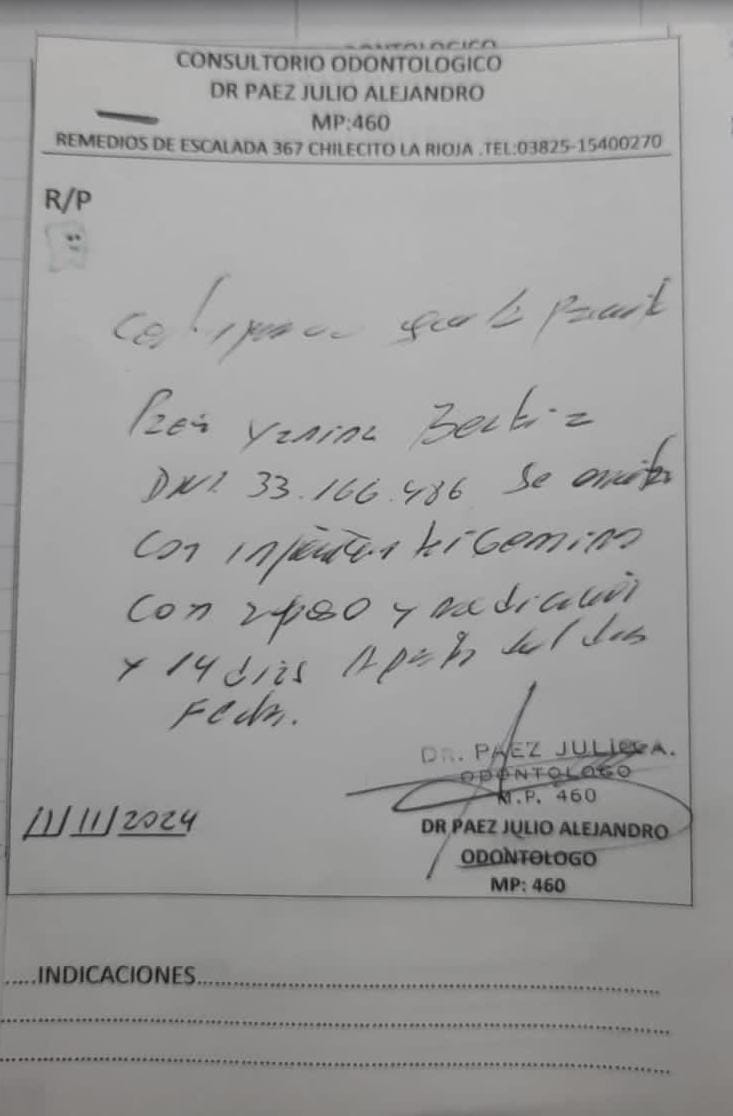 CONSULTORIO ODONTOLOGICO
DR PAEZ JULIO ALEJANDRO
MP:460
REMEDIOS DE ESCALADA 367 CHILECITO LA RIOJA .TEL:03825-15400270
R/P
que la
Yanina Beatriz
DNI 33.166.486 Se
Con trigemino
Con reposo y medicación
x 14 dias
Fecha.
DR. PAEZ JULIO A.
ODONTOLOGO
M.P. 460
11/11/2024
DR PAEZ JULIO ALEJANDRO
ODONTOLOGO
MP: 460
.....INDICACIONES